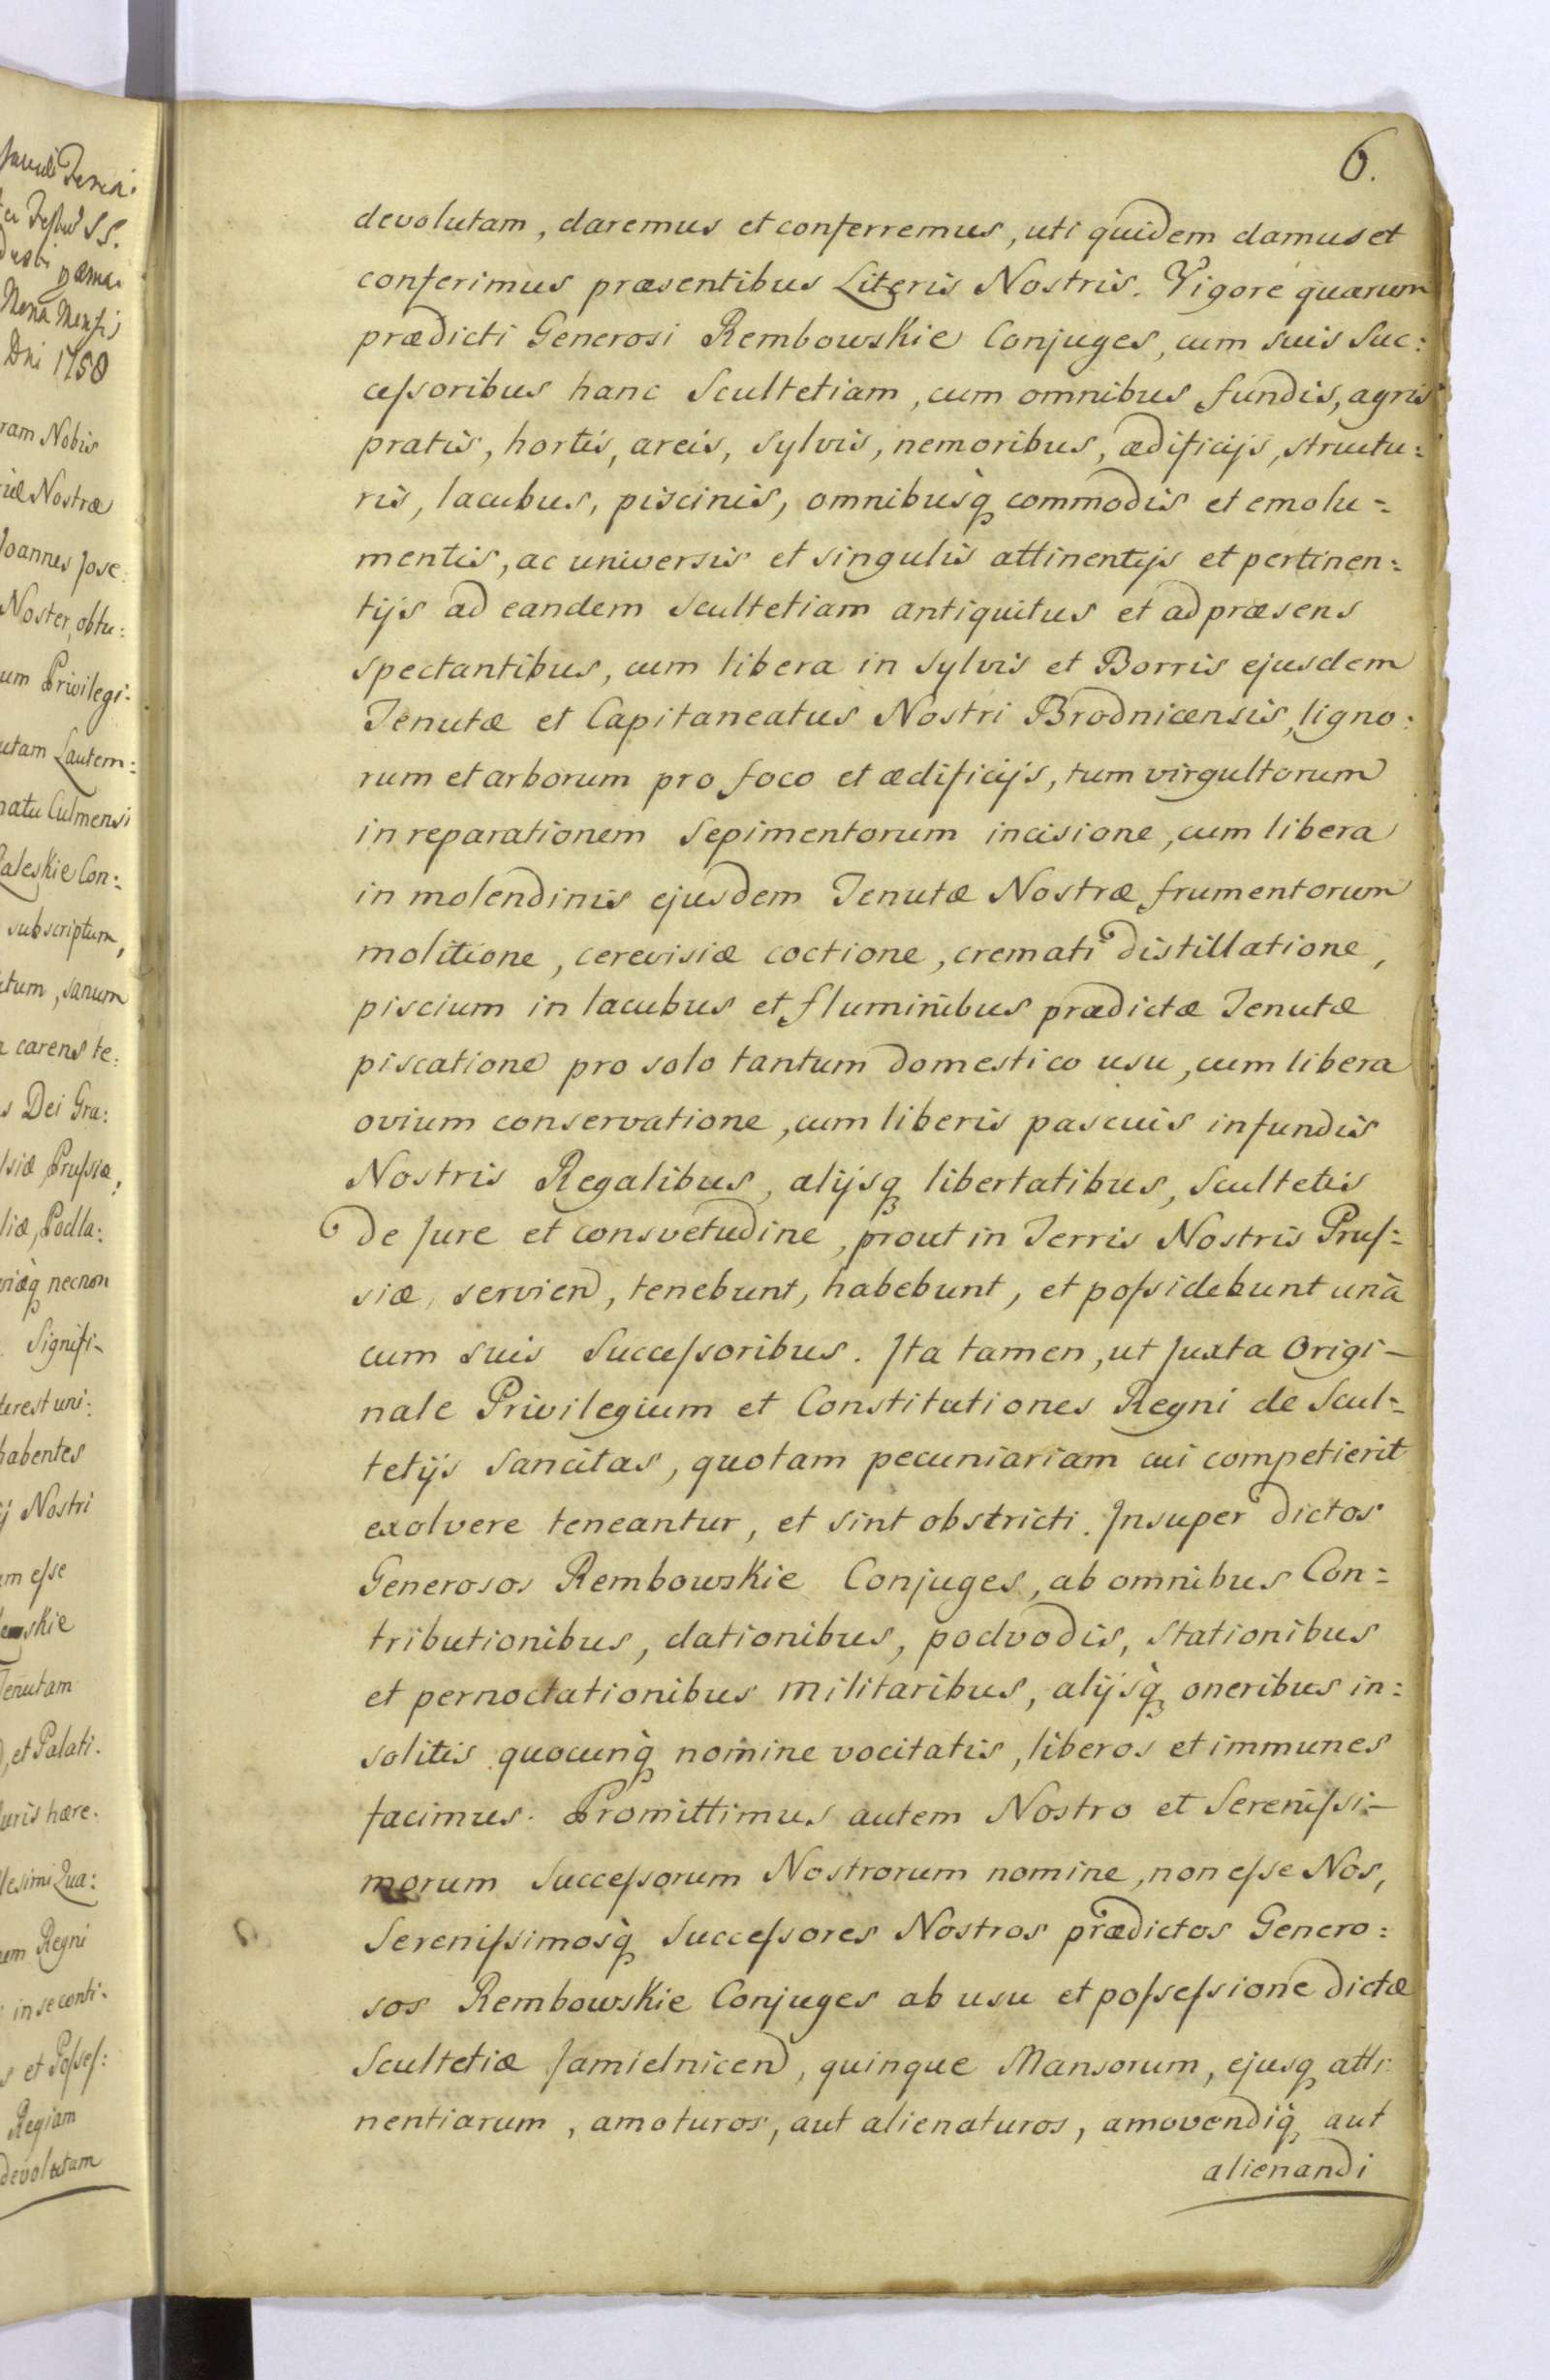 Dni 1758
ram Nobis
Nostræ
Joannes Jose:
Noster, obtu:
um Privilegi-
utam Lautem:
natu Culmensi
aleskie Con:
subscriptum,
tum, sanum
carens te:
s Dei Gra:
siæ Prussiæ,
liæ, Podla:
necnon
Signifi-
terest uni:
habentes
ij Nostri
um esse
skie
Tenutam
, et Palati.
Juris hære.
lesimi Qua:
em Regni
in se conti-
s et Posses:
Regiam
devolutam
6.
devolutam, daremus et conferremus, uti quidem damus et
conferimus præsentibus Literis Nostris. Vigore quarum
prædicti Generosi Rembowskie Conjuges, cum suis Suc:
cessoribus hanc Scultetiam, cum omnibus fundis, agris
pratis, hortis, areis, sylvis, nemoribus, ædificijs, structu:
ris, lacubus, piscinis, omnibusq̀ commodis et emolu=
mentis, ac universis et singulis attinentijs et pertinen:
tijs ad eandem Scultetiam antiquitus et ad præsens
spectantibus, cum libera in Sylvis et Borris ejusdem
Tenutæ et Capitaneatus Nostri Brodnicensis, ligno:
rum et arborum pro foco et ædificijs, tum virgultorum
in reparationem Sepimentorum incisione, cum libera
in molendinis ejusdem Tenutæ Nostræ frumentorum
molitione, cerevisiæ coctione, cremati distillatione,
piscium in lacubus et fluminibus prædictæ Tenutæ
piscatione pro solo tantum domestico usu, cum libera
ovium conservatione, cum liberis pascuis in fundis
Nostris Regalibus, alijsq libertatibus, Scultetis
de Jure et consvetudine, prout in Terris Nostris Prus:
siæ, servien, tenebunt, habebunt, et possidebunt unà
cum suis Successoribus. Ita tamen, ut Juxta Origi-
nale Privilegium et Constitutiones Regni de Scul=
tetijs Sancitas, quotam pecuniariam cui competierit
exolvere teneantur, et sint obstricti. Insuper dictos
Generosos Rembowskie Conjuges, ab omnibus Con=
tributionibus, dationibus, podvodis, Stationibus
et pernoctationibus militaribus, alijsq̀ oneribus in:
solitis quocunq̀ nomine vocitatis, liberos et immunes
facimus. Promittimus autem Nostro et Serenissi-
morum Successorum Nostrorum nomine, non esse Nos,
Serenissimosq̀ Successores Nostros prædictos Genero:
sos Rembowskie Conjuges ab usu et possessione dictæ
Scultetiæ Jamielnicen, quinque Mansorum, ejusq atti
nentiarum, amoturos, aut alienaturos, amovendiq̀ aut
alienandi